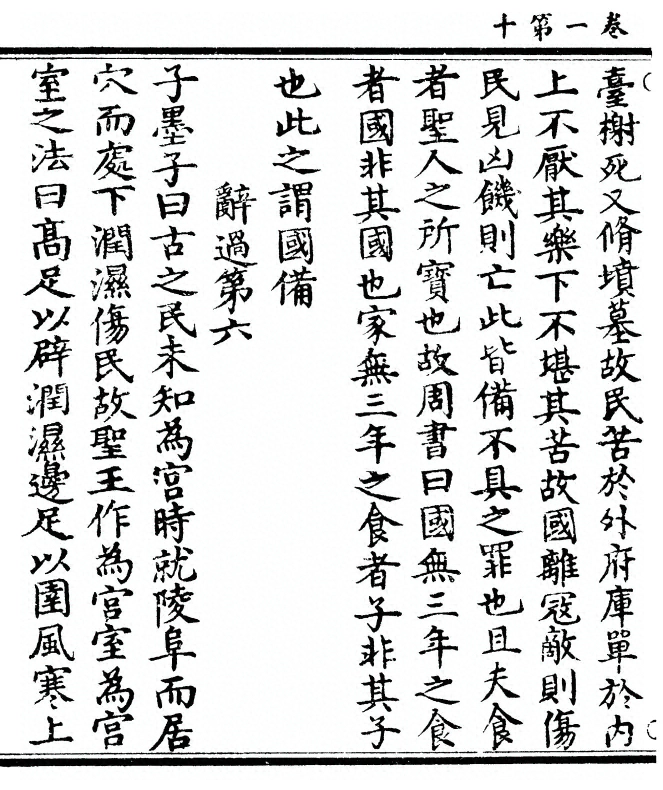 卷一第十
臺榭死又脩墳墓故民苦於外府庫單於內
上不厭其樂下不堪其苦故國離冦敵則傷
民見凶饑則亡此皆備不具之罪也且夫食
者聖人之所寶也故周書曰國無三年之食
者國非其國也家無三年之食者子非其子
也此之謂國備
辭過第六
子墨子曰古之民未知為宮時就陵阜而居
穴而處下潤濕傷民故聖王作為宮室為宮
室之法曰高足以辟潤濕邊足以圉風寒上